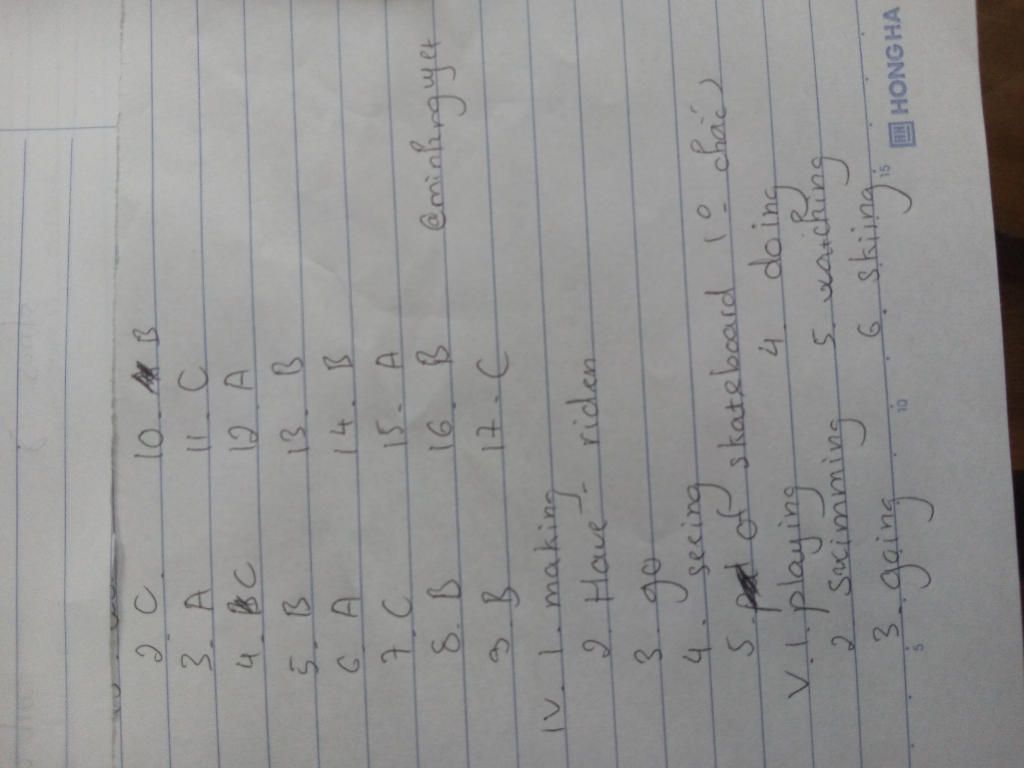 2. C 10. B
3. A 11. C
4. C 12. A
5. B 13. B
6. A 14. B
7. C 15. A
8. B 16. B @minhnguyet
9. B 17. C
IV. 1. making
2. Have - riden
3. go
4. seeing
5. of skateboard (0 - chắc)
V. 1. playing 4. doing
2. swimming 5. watching
3. going 6. skiing
5 10 15
HN HONG HA